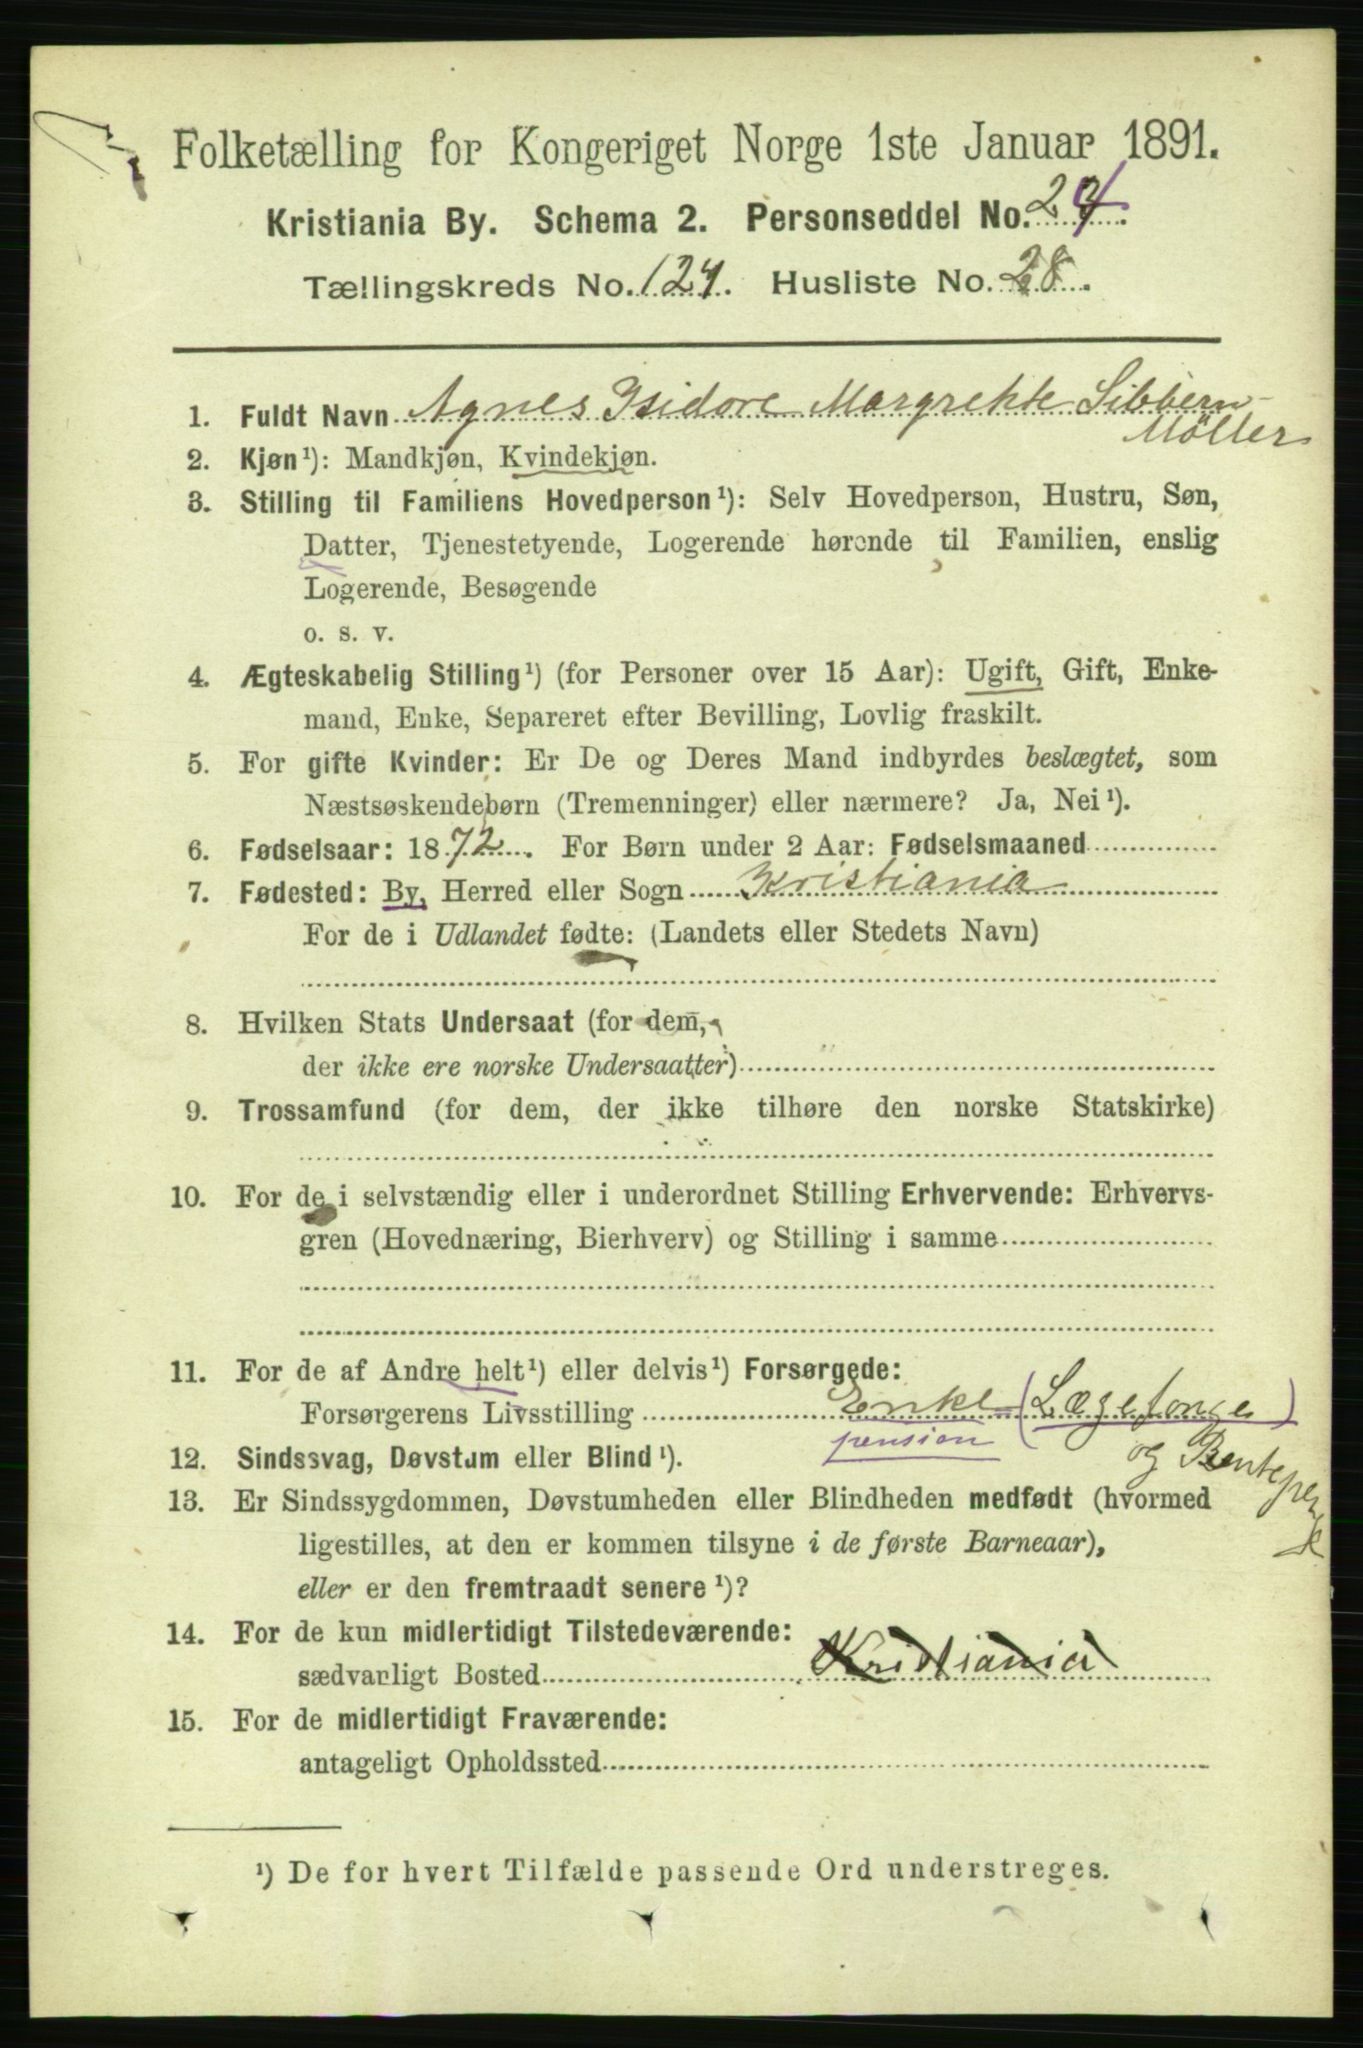 Folketælling for Kongeriget Norge 1ste Januar 1891.
Kristiania By. Schema 2. Personseddel No. 24.
Tællingskreds No. 124. Husliste No. 28.
1. Fuldt Navn Agnes Isidore Margrethe Sibbern-
Møller
2. Kjøn¹): Mandkjøn, Kvindekjøn.
3. Stilling til Familiens Hovedperson¹): Selv Hovedperson, Hustru, Søn,
Datter, Tjenestetyende, Logerende hørende til Familien, enslig
Logerende, Besøgende
o. s. v.
4. Ægteskabelig Stilling¹) (for Personer over 15 Aar): Ugift, Gift, Enke-
mand, Enke, Separeret efter Bevilling, Lovlig fraskilt.
5. For gifte Kvinder: Er De og Deres Mand indbyrdes beslægtet, som
Næstsøskendebørn (Tremenninger) eller nærmere? Ja, Nei¹).
6. Fødselsaar: 1872. For Børn under 2 Aar: Fødselsmaaned
7. Fødested: By, Herred eller Sogn Kristiania
For de i Udlandet fødte: (Landets eller Stedets Navn)
8. Hvilken Stats Undersaat (for dem,
der ikke ere norske Undersaatter)
9. Trossamfund (for dem, der ikke tilhøre den norske Statskirke)
10. For de i selvstændig eller i underordnet Stilling Erhvervende: Erhvervs-
gren (Hovednæring, Bierhverv) og Stilling i samme
11. For de af Andre helt¹) eller delvis¹) Forsørgede:
Forsørgerens Livsstilling Enke (Lægefonge)
pension
og Rentepen
12. Sindssvag, Døvstum eller Blind¹).
13. Er Sindssygdommen, Døvstumheden eller Blindheden medfødt (hvormed
ligestilles, at den er kommen tilsyne i de første Barneaar),
eller er den fremtraadt senere¹)?
14. For de kun midlertidigt Tilstedeværende:
sædvanligt Bosted Kristiania
15. For de midlertidigt Fraværende:
antageligt Opholdssted
¹) De for hvert Tilfælde passende Ord understreges.